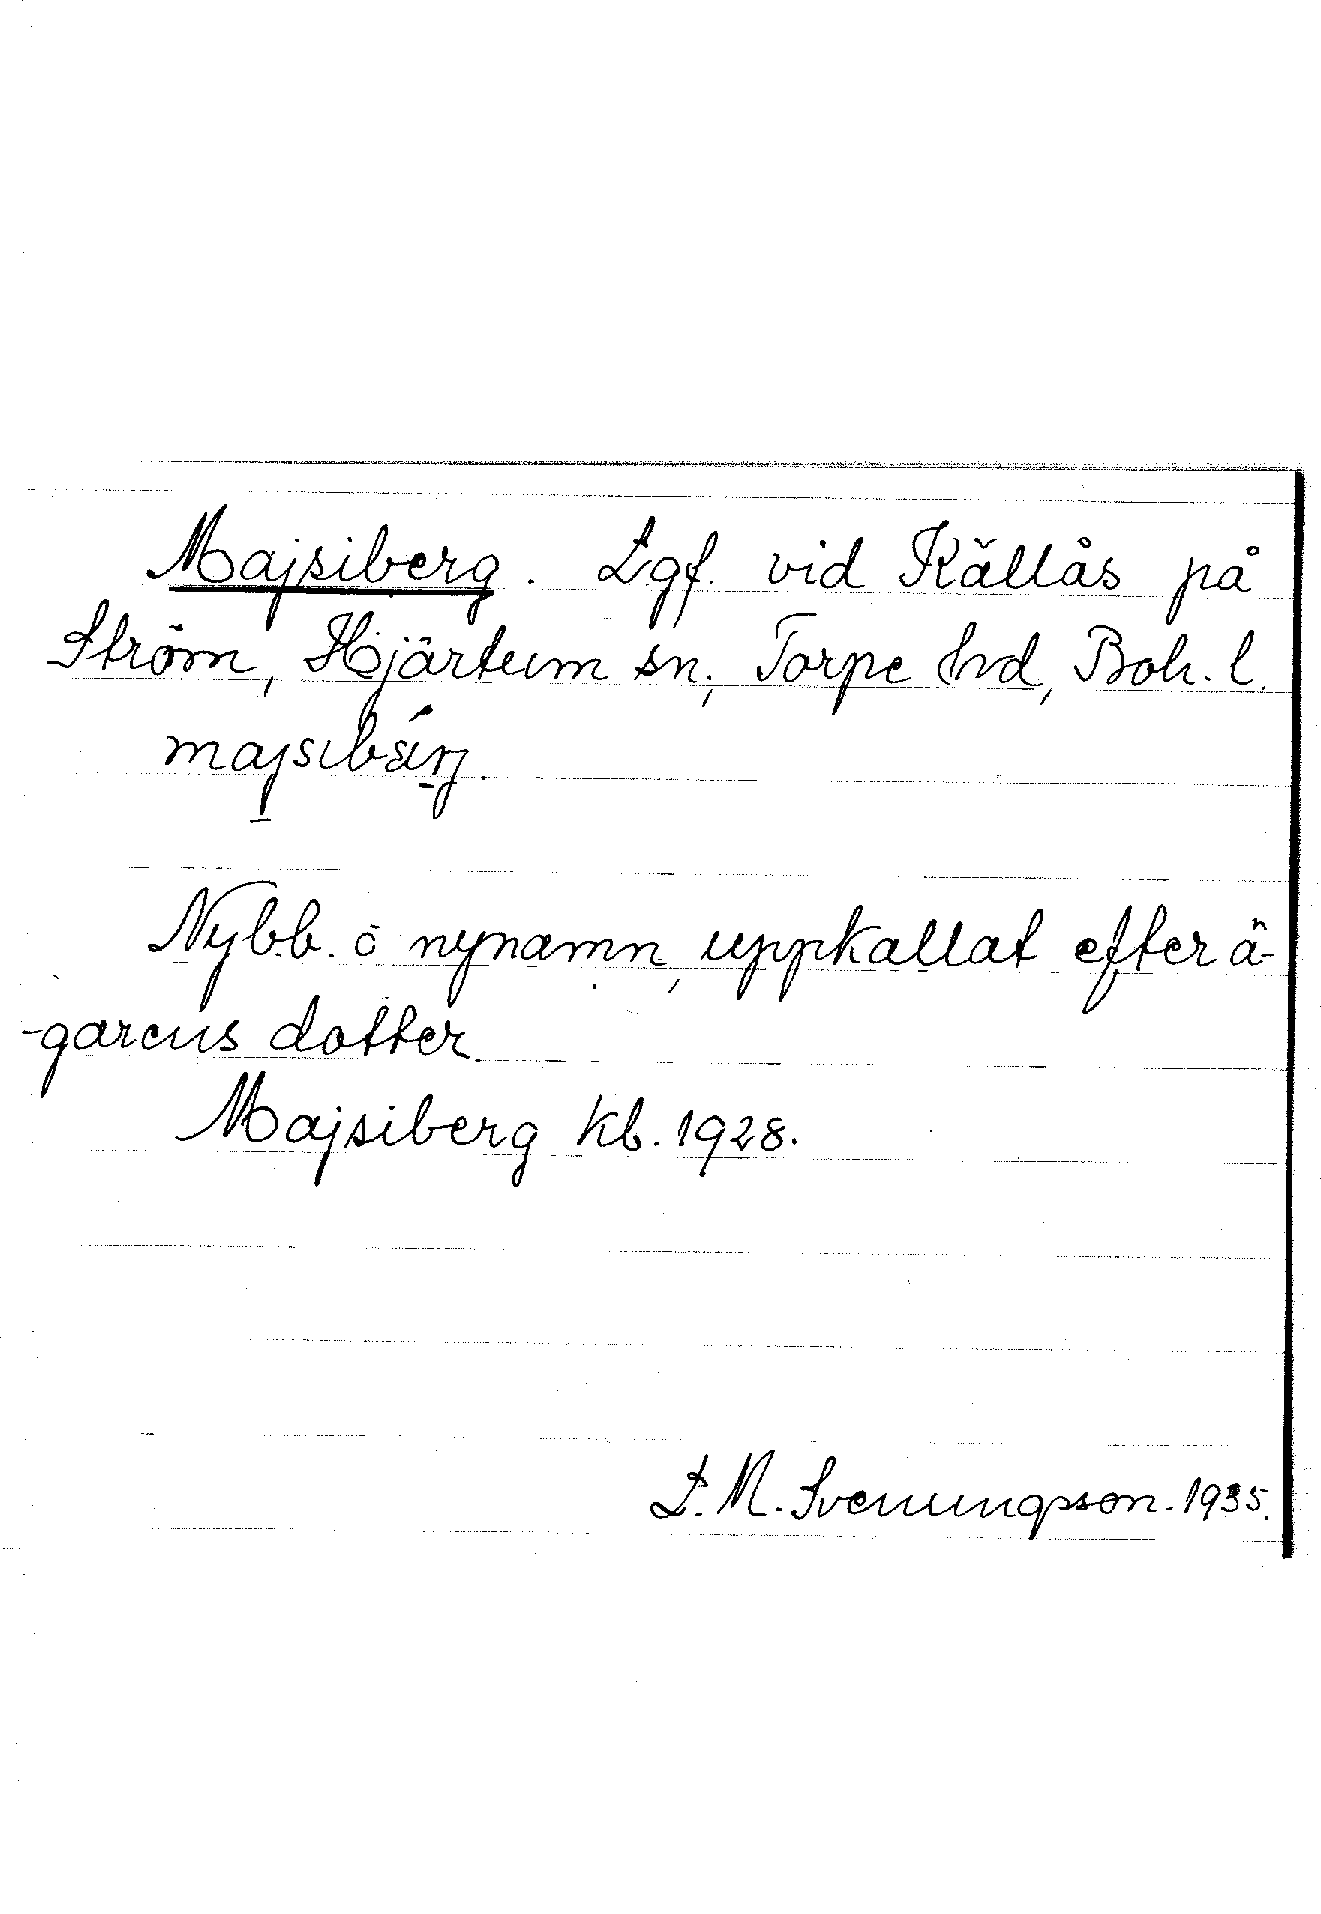 Majsiberg. Lgf. vid Källås på
Ström, Hjärtum sn, Torpe hd, Boh. l.
majsibärj.
Nyb.b. o nynamn, uppkallat efter ä-
-garens dotter
Majsiberg kb. 1928.
L. M. Svenungsson. 1935.